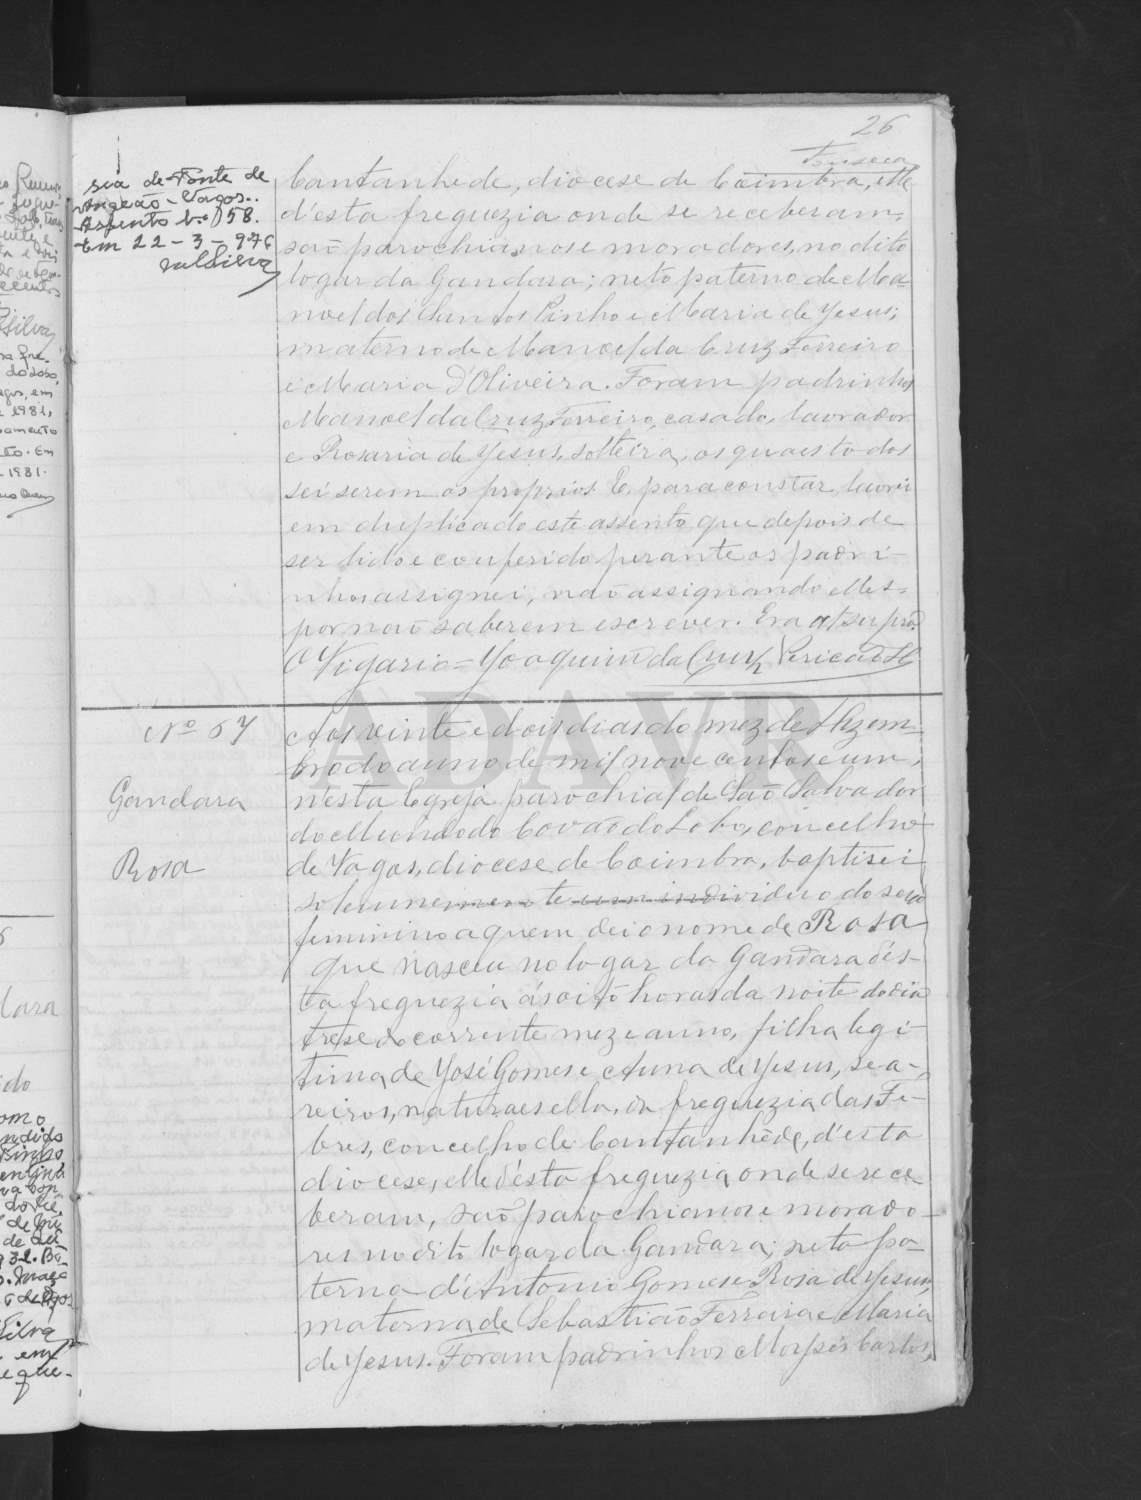 26
Fonseca
sia de Fonte de
Angeão - Vagos..
Assento N.º 158.
Em 22-3-976
Cantanhede, diocese de Coimbra, elle
d'esta freguezia onde se receberam,
são parochianos e moradores, no dito
logar da Gandara; neto paterno de Ma-
noel dos Santos Pinho e Maria de Jesus;
materno de Manoel da Cruz Ferreiro
e Maria d'Oliveira. Foram padrinhos
Manoel da Cruz Ferreiro, casado, lavrador
e Rosaria de Jesus, solteira, os quaes todos
sei serem os proprios. E, para constar, lavrei
em duplicado este assento, que depois de
ser lido e conferido perante os padri-
nhos assignei, não assignando elles
por não saberem escrever. Era ut supra.
O Vigario = Joaquim da Cruz Pericão
Nº 67
Gandara
Rosa
Aos vinte e dois dias do mez de Dezem-
bro do anno de mil nove centos e um,
n'esta Egreja parochial de São Salvador
do Mundo do Covão do Lobo, concelho
de Vagos, diocese de Coimbra, baptisei
solemnemente um individuo do sexo
feminino a quem dei o nome de Rosa
que nasceu no logar da Gandara d'es-
ta freguezia ás oito horas da noite do dia
treze do corrente mez e anno, filha legi-
tima de José Gomes e Anna de Jesus, sea-
reiros, naturaes ella, da freguezia das Fe-
bres, concelho de Cantanhede, d'esta
diocese, elle d'esta freguezia onde se rece-
beram, são parochianos e morado-
res no dito logar da Gandara; neta pa-
terna d'Antonio Gomes e Rosa de Jesus,
materna de Sebastião Ferreira e Maria
de Jesus. Foram padrinhos Moysés Carlos,